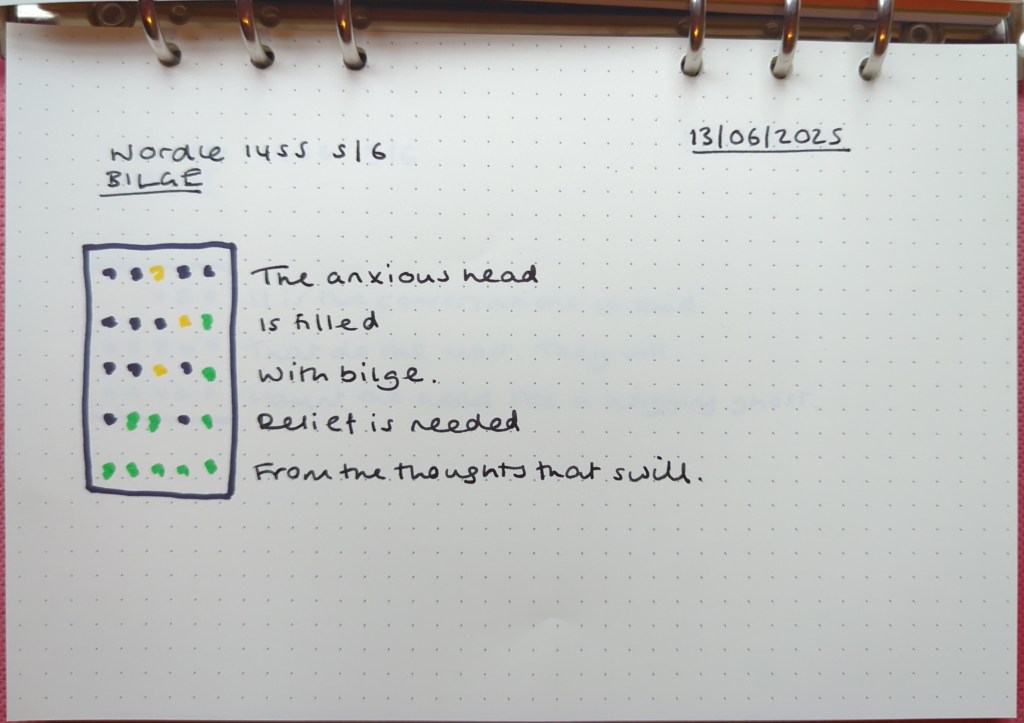 Wordle 1455 5/6
13/06/2025
BILGE
The anxious head
Is filled
With bilge.
Relief is needed
From the thoughts that swill.